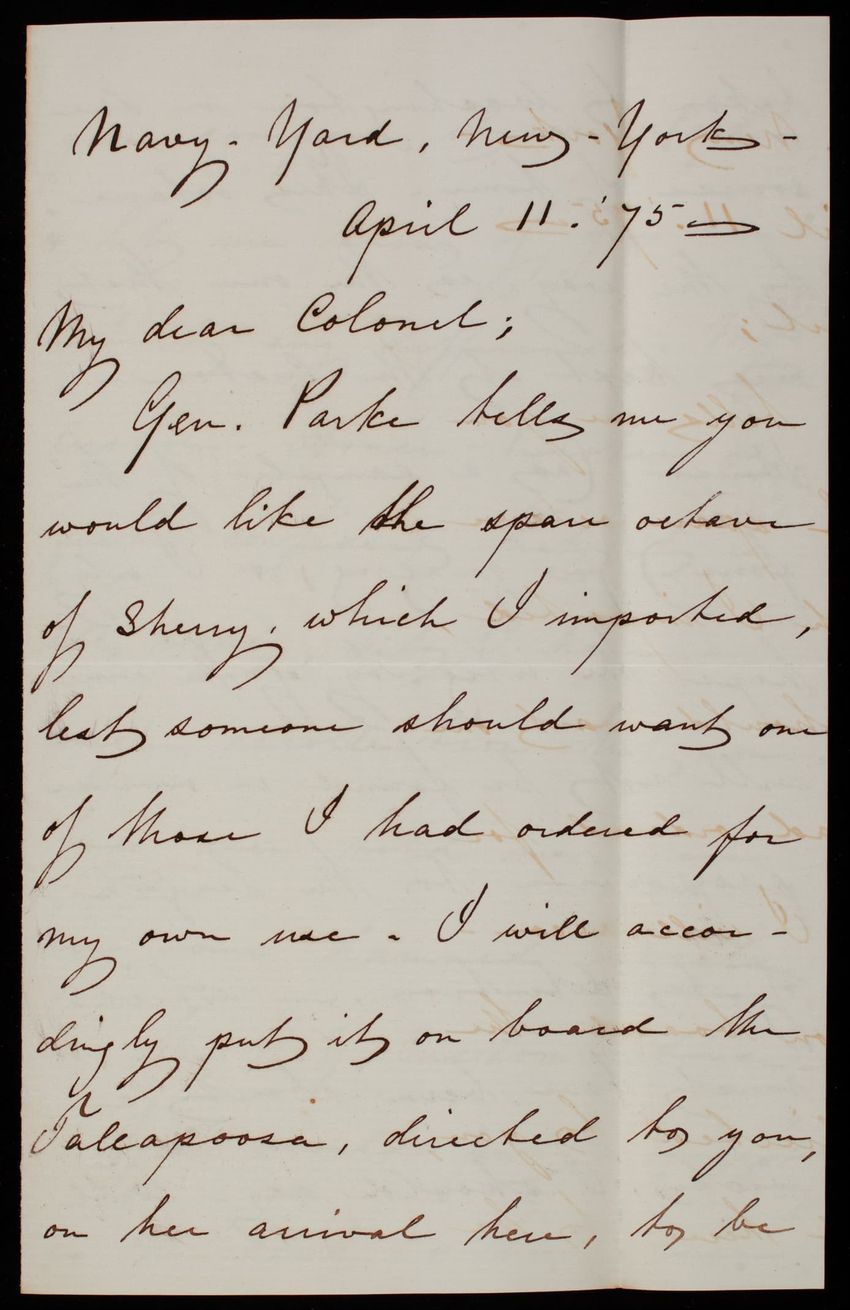 Navy-Yard, New-York-
April 11. '75
My dear Colonel;
Gen. Parke tells me you
would like the spare octave
of Sherry, which I imported,
lest someone should want one
of those I had ordered for
my own use. I will accor-
dingly put it on board the
Talapoosa, directed to you,
on her arrival here, to be